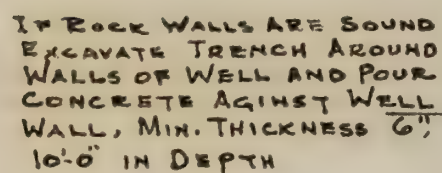 IF ROCK WALLS ARE SOUND
EXCAVATE TRENCH AROUND
WALLS OF WELL AND POUR
CONCRETE AGINST WELL
WALL, MIN. THICKNESS 6",
10'-0" IN DEPTH